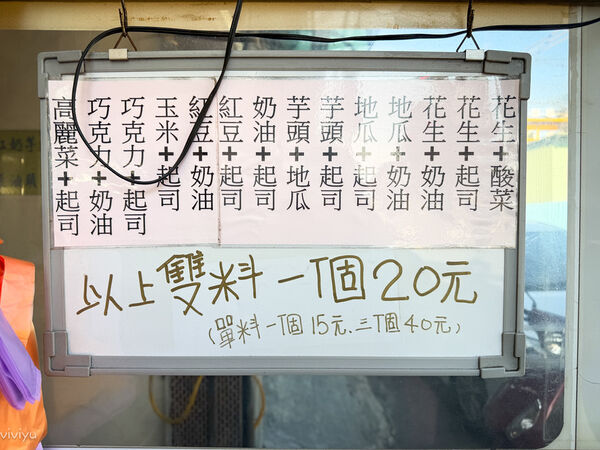 花生+酸菜
花生+起司
花生+奶油
地瓜+奶油
地瓜+起司
芋頭+起司
芋頭+地瓜
奶油+起司
紅豆+起司
紅豆+奶油
玉米+起司
巧克力+起司
巧克力+奶油
高麗菜+起司
以上雙料一個20元
(單料一個15元、三個40元)
viviyu